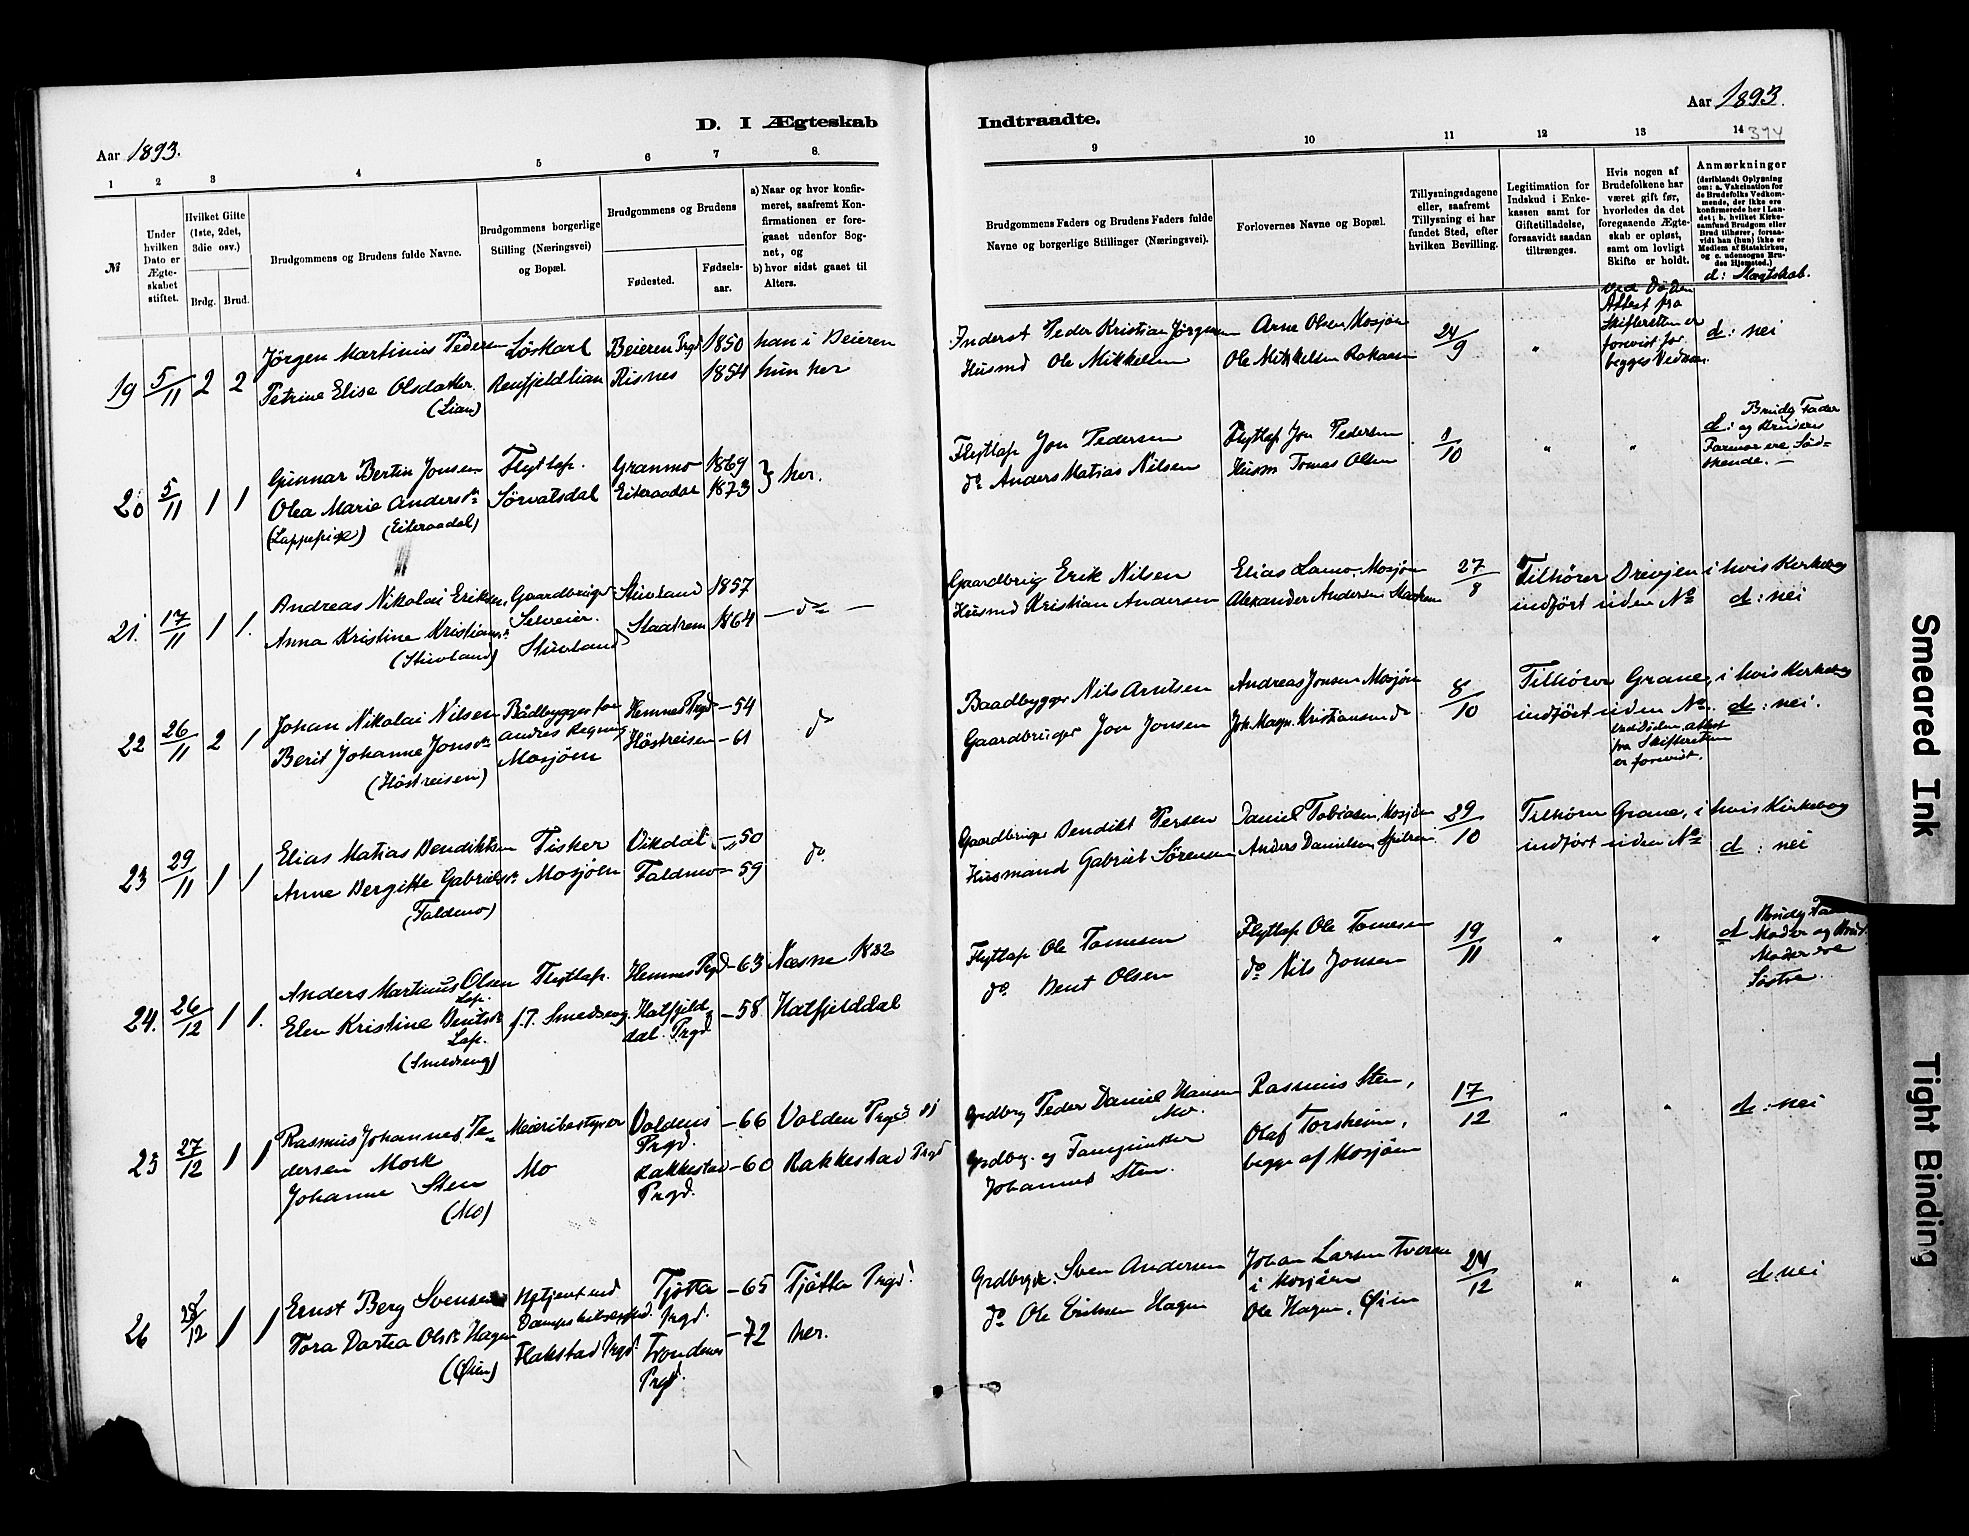 Aar 1893.
D. I Ægteskab
Indtraadte.
Aar 1893.
374
1 2 3 4 5 6 7 8.
9 10 11 12 13 14
№
Under hvilken Dato er Ægteskabet stiftet.
Hvilket Gifte (1ste, 2det, 3die osv.)
Brdg. Brud.
Brudgommens og Brudens fulde Navne.
Brudgommens borgerlige Stilling (Næringsvei) og Bopæl.
Brudgommens og Brudens
Fødested.
Fødselsaar.
a) Naar og hvor konfirmeret, saafremt Konfirmationen er foregaaet udenfor Sognet, og
b) hvor sidst gaaet til Alters.
Brudgommens Faders og Brudens Faders fulde Navne og borgerlige Stillinger (Næringsvei).
Forlovernes Navne og Bopæl.
Tillysningsdagene eller, saafremt Tillysning ei har fundet Sted, efter hvilken Bevilling.
Legitimation for Indskud i Enkekassen samt for Giftetilladelse, forsaavidt saadan tiltrænges.
Hvis nogen af Brudefolkene har været gift før, hvorledes da det foregaaende Ægteskab er opløst, samt om lovligt Skifte er holdt.
Anmærkninger
(deriblandt Oplysning om: a. Vakcination for de Brudefolks Vedkommende, der ikke ere konfirmerede her i Landet; b. hvilket Kirkesamfund Brudgom eller Brud tilhører, forsaavidt han (hun) ikke er Medlem af Statskirken, og c. udensogns Brudes Hjemsted.)
d: Slægtskab.
19 5/11 2 2 Jörgen Martinius Pedersen Löskarl Beieren Prgd 1850 han i Beieren
Petrine Elise Olsdatter (Lian) Renfjeldlian Risnes 1854 hun her
Inderst Peder Kristian Jörgensen Arne Olsen Mosjöen 24/9 " ved Döden Attest fra Skifteretten er forevist for begges Vedkom. d: nei
Husmd Ole Mikkelsen Ole Mikkelsen
20 5/11 1 1 Gunnar Bertin Jonsen Flytlap. Granmo 1869 } her.
Olea Marie Andersdr Sörvatsdal Eiteraadal 1873
(Lappepige) (Eiteraadal)
Flytlap Jon Pedersen Flytlap Jon Pedersen 8/10 " " d: Brudg Fader og Brudens Farmor ere Södskende. —
do Anders Matias Nilsen Husm Tomas Olsen
21. 17/11 1 1. Andreas Nikolai Eriksen Gaardbruger Stuvland 1857
Anna Kristine Kristiansdr (Stuvland) Selveier. Stuvland Staatrem 1864 — do —
Gaardbrug Erik Nilsen Elias Lamo, Mosjöen 27/8 Tilhörer Drevjen i hvis Kirkebog
Husmd Kristian Andersen Alexander Andersen indfört uden No d: nei
22 26/11 2 1 Johan Nikolai Nilsen Bådbygger for andres Regning Hemnes Prgd – 54 do
Berit Johanne Jonsdr (Höstreisen) Mosjöen Höstreisen – 61
Baadbygger Nils Arntsen Andreas Jonsen Mosjöen 8/10 Tilhörer Grane, i hvis Kirkebog
Gaardbruger Jon Jonsen Joh. Magn. Kristiansen do indfört uden No. d: nei.
ved Döden, attest fra Skifteretten er forevist.
23 29/11 1 1 Elias Matias Bendiktsen Fisker Vikdal – 50 do.
Anne Bergitte Gabrielsdr (Faldmo) Mosjöen Faldmo – 59
Gaardbruger Bendikt Persen Daniel Tobiasen, Mosjöen 29/10 Tilhörer Grane, i hvis Kirkebog
Husmand Gabriel Sörensen Anders Danielsen indfört uden No d: nei
24. 26/12 1 1. Anders Martinus Olsen Lap. Flytlap. Hemnes Prgd – 63 Nesne 1882
Elen Kristine Bentsdr Lap. (Smedseng) f.T. Smedseng. Hatfjelddal. Prgd. – 58 Hatfjelddal
Flytlap Ole Tomesen Flytlap Ole Tomesen 19/11 " " d Brudg Faders Moder og Brud. Moder ere Söstre.
do. Bent Olsen do Nils Jonsen
25 27/12 1 1 Rasmus Johannes Pedersen Mork Meieribestyrer Voldens Prgd. – 66 Volden Prgd
Johanne Sten (Mo) Mo Rakkestad Prgd. – 60 Rakkestad Prgd
Grdbrg Peder Daniel Hansen Mo. Rasmus Sten, 17/12 " " d: nei
Grdbrg. og Johannes Sten. Olaf Torsheim, begge af Mosjöen
26 28/12 1 1 Ernst Berg Svensen Dampskibsexped. Tjötta Prgd. – 65 Tjötta Prgd!
Tora Dortea Olsdr Hagen (Øien) Flakstad Prgd. Trondenes Prgd. – 72 her.
Grdbrgr. Sven Andersen Johan Larsen i Mosjöen 24/12 " " d: nei
do Ole Eriksen Hagen Ole Hagen, Øien
Smeared Ink
Tight Binding